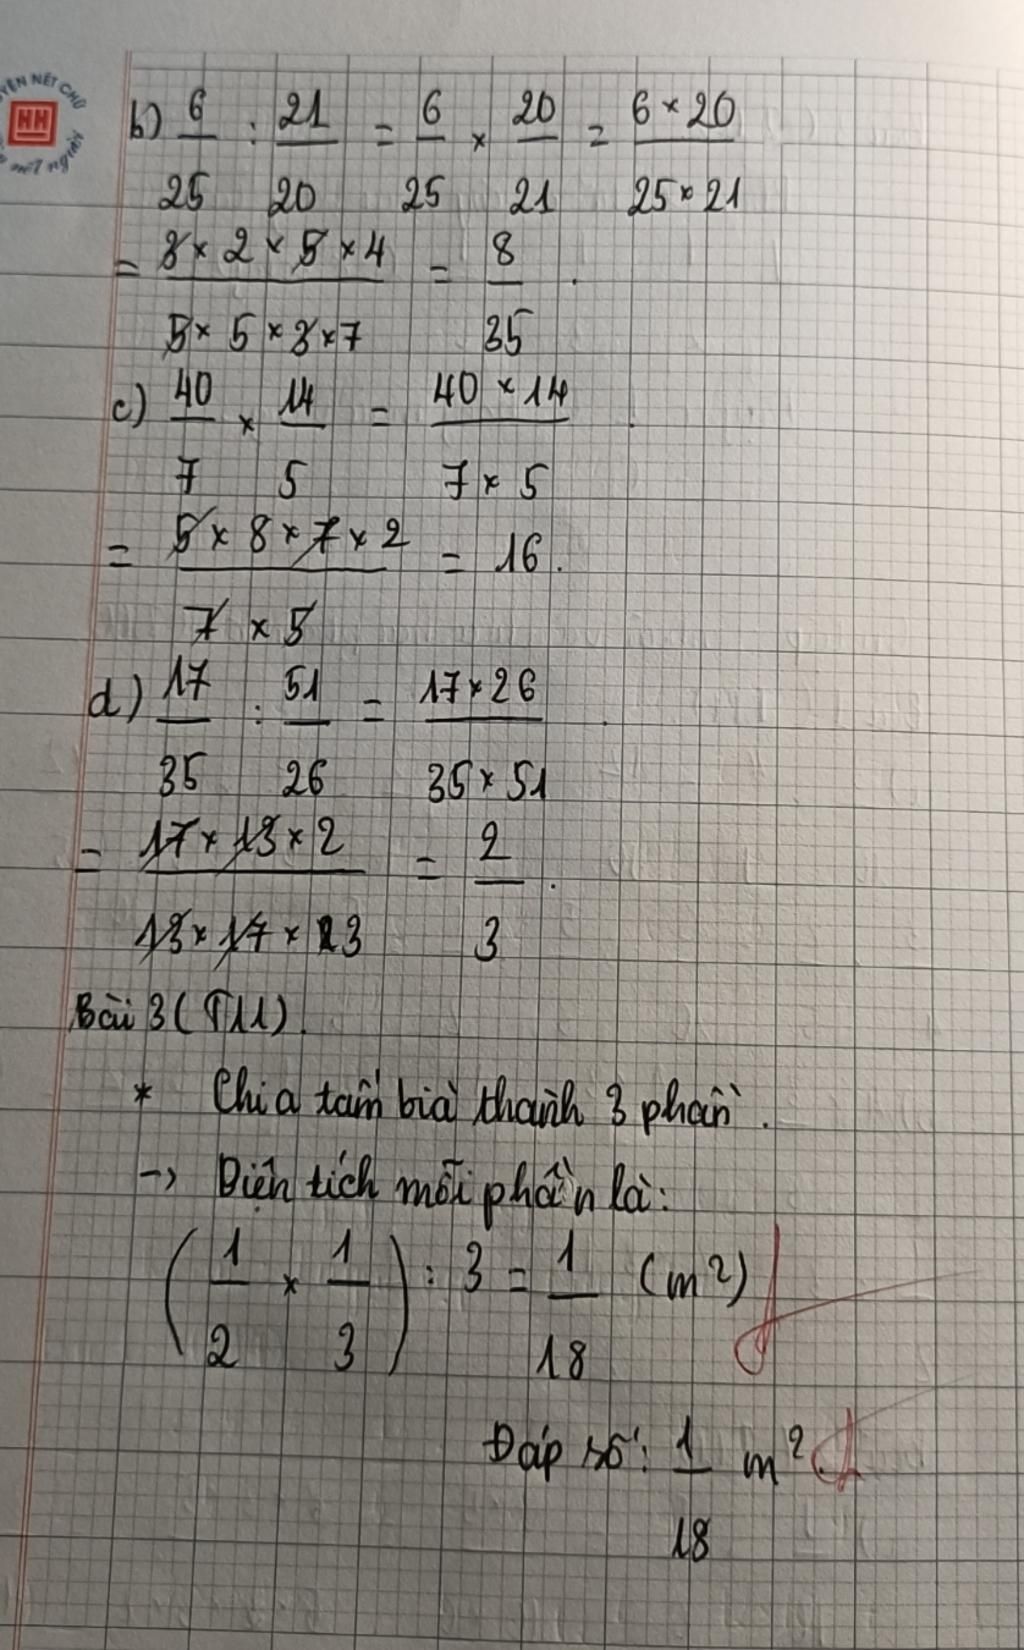 YỆN NÉT CHỮ
HH
n nết người
b) 6/25 : 21/20 = 6/25 × 20/21 = 6 × 20 / 25 × 21
= 3 × 2 × 5 × 4 / 5 × 5 × 3 × 7 = 8/35 .
c) 40/7 × 14/5 = 40 × 14 / 7 × 5
= 5 × 8 × 7 × 2 / 7 × 5 = 16 .
d) 17/35 : 51/26 = 17 × 26 / 35 × 51
= 17 × 13 × 2 / 13 × 17 × 3 = 2/3 .
Bài 3 (T11)
* Chia tấm bìa thành 3 phần .
-> Diện tích mỗi phần là:
(1/2 × 1/3) : 3 = 1/18 (m²)
Đáp số: 1/18 m².